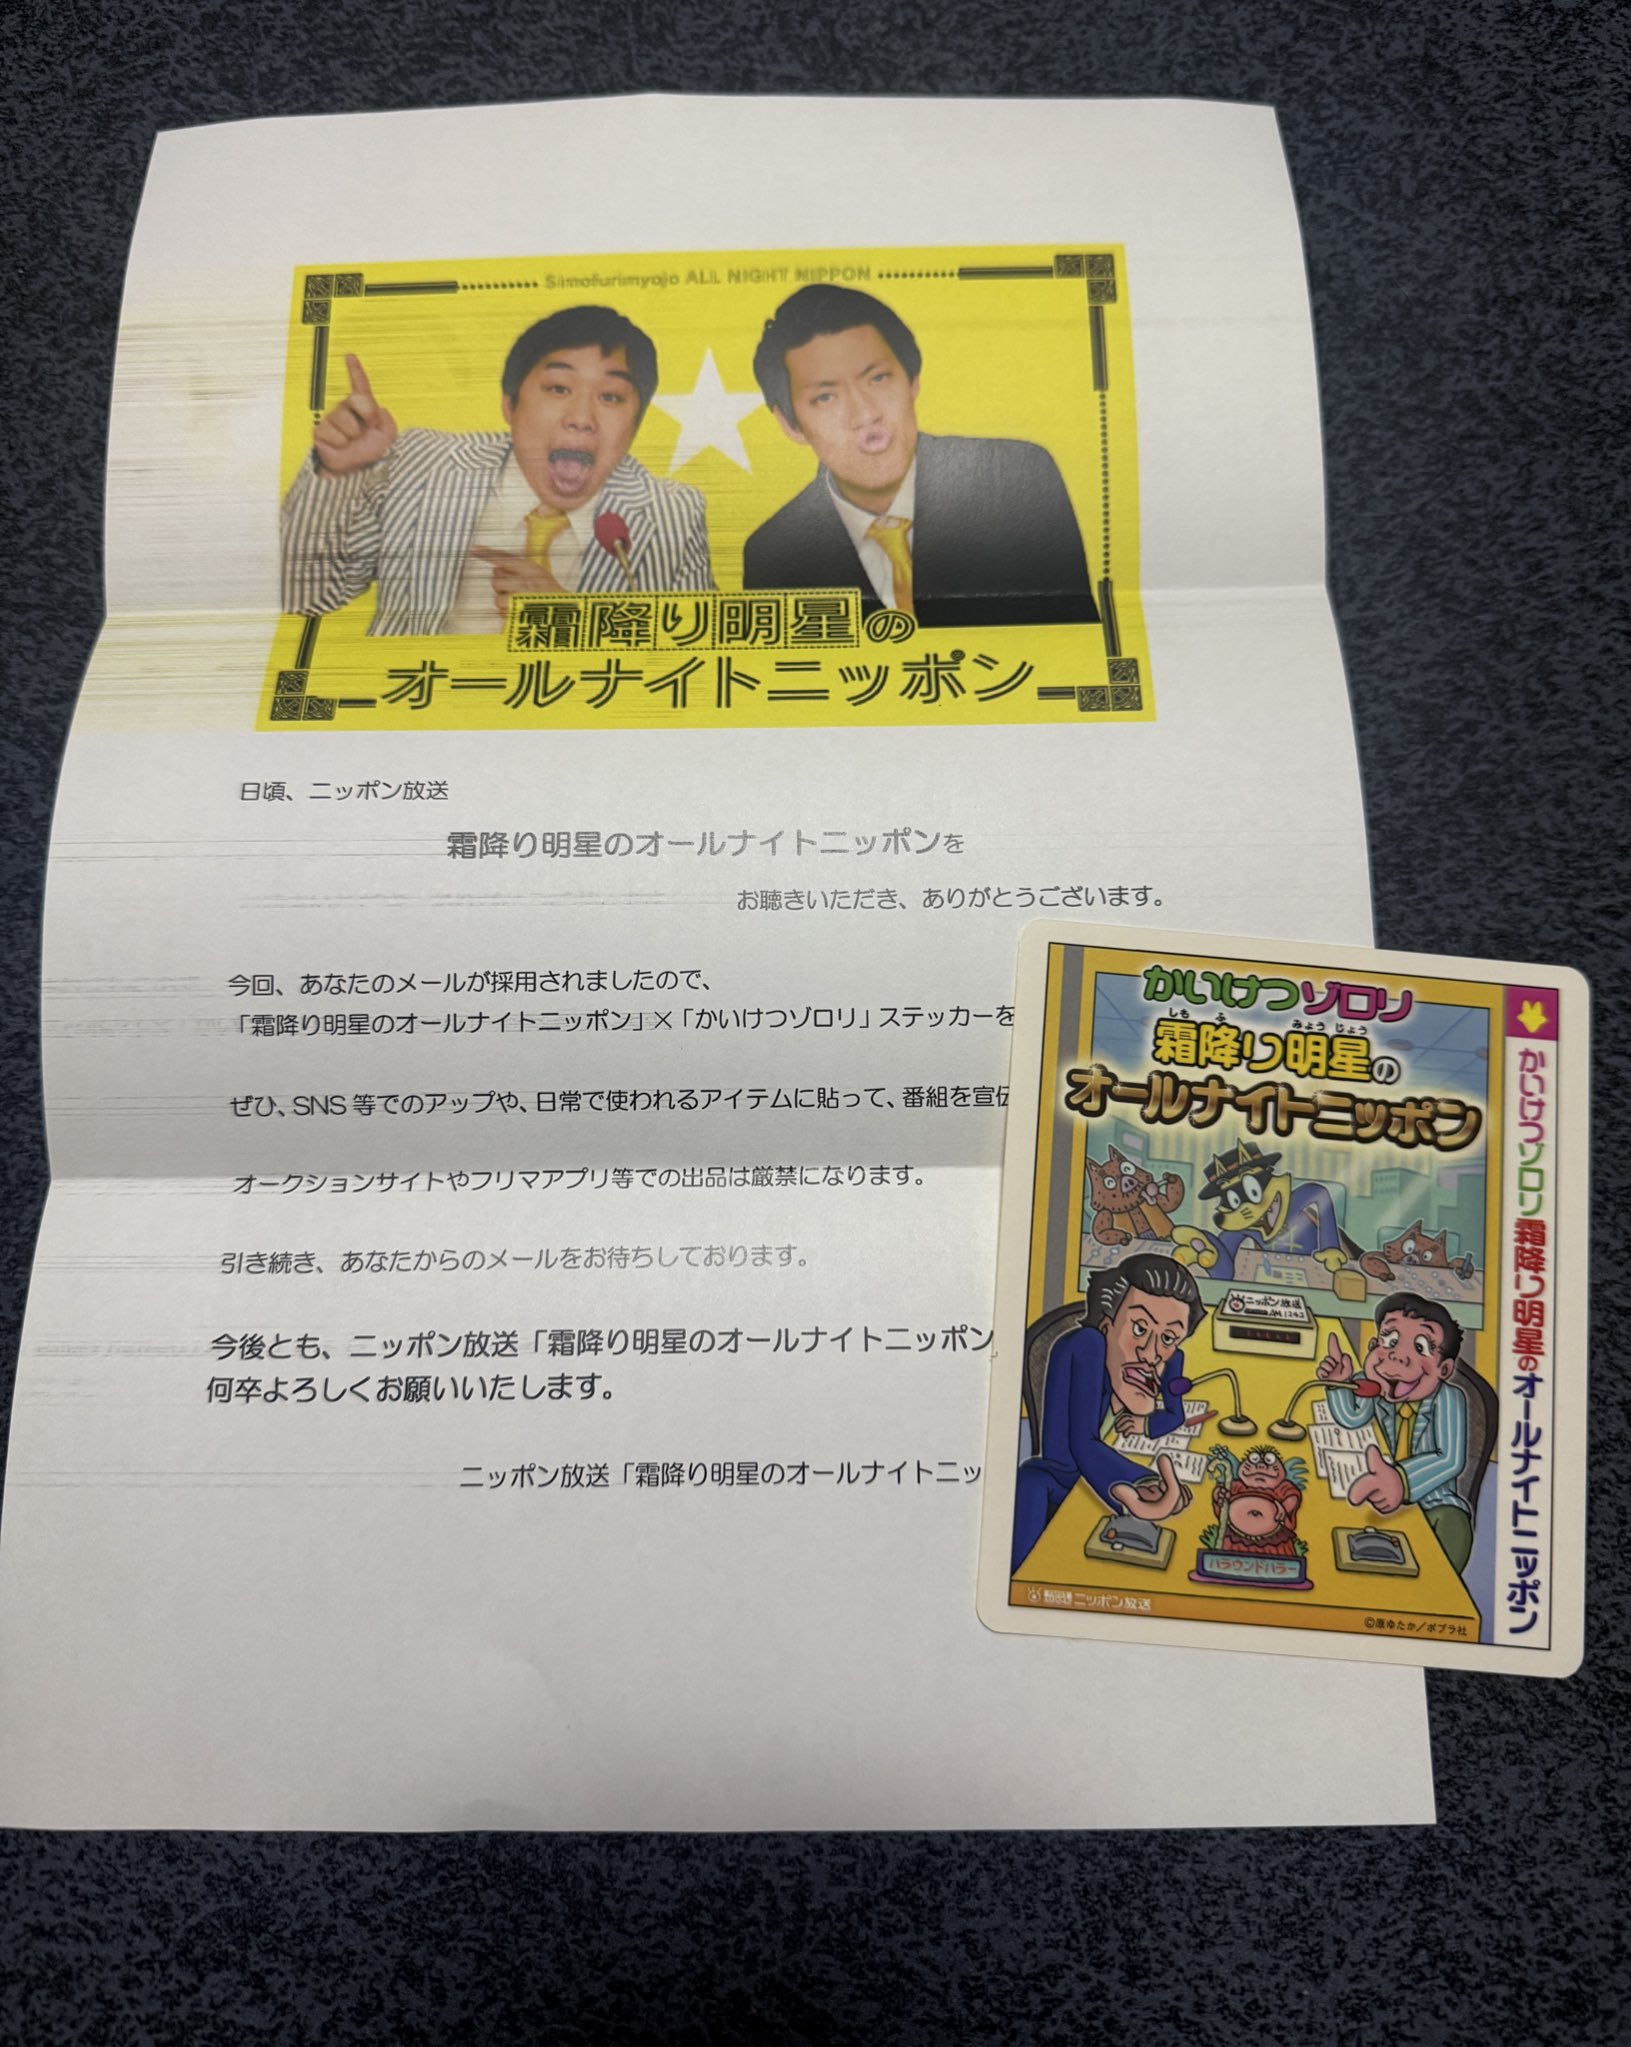 Simofurimyojo ALL NIGHT NIPPON
霜降り明星の
オールナイトニッポン
日頃、ニッポン放送
霜降り明星のオールナイトニッポンを
お聴きいただき、ありがとうございます。
今回、あなたのメールが採用されましたので、
「霜降り明星のオールナイトニッポン」×「かいけつゾロリ」ステッカーを
ぜひ、SNS 等でのアップや、日常で使われるアイテムに貼って、番組を宣伝
オークションサイトやフリマアプリ等での出品は厳禁になります。
引き続き、あなたからのメールをお待ちしております。
今後とも、ニッポン放送「霜降り明星のオールナイトニッポン
何卒よろしくお願いいたします。
ニッポン放送「霜降り明星のオールナイトニッ
かいけつゾロリ
しも ふ みょう じょう
霜降り明星の
オールナイトニッポン
ニッポン放送
AM 1242
ハラウンドハラー
ニッポン放送
©原ゆたか／ポプラ社
かいけつゾロリ 霜降り明星のオールナイトニッポン